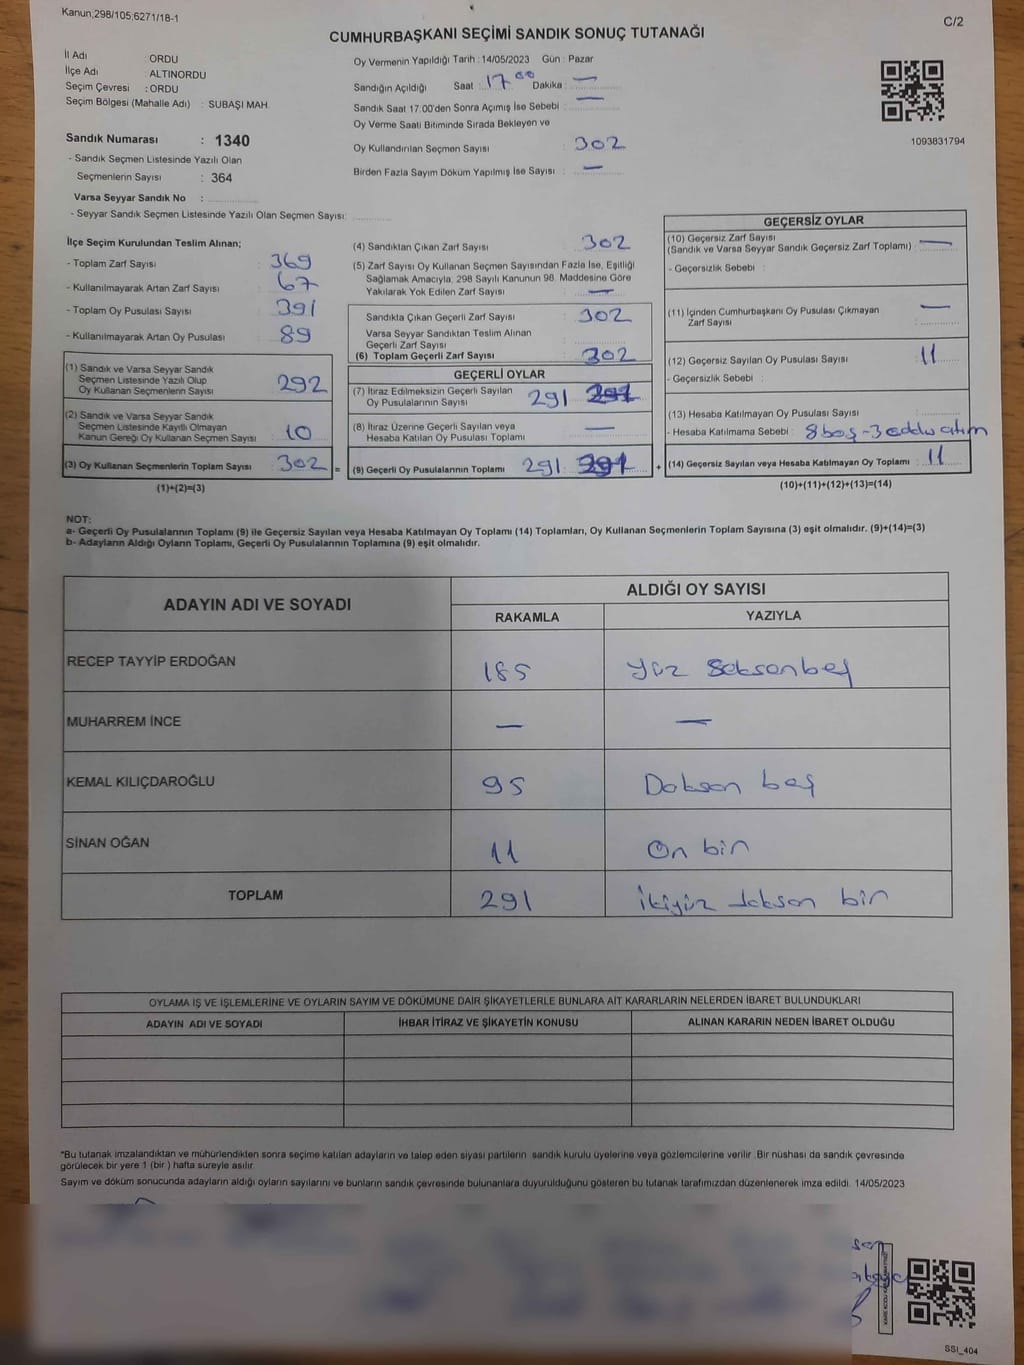 Kanun;298/105;6271/18-1
C/2
CUMHURBAŞKANI SEÇİMİ SANDIK SONUÇ TUTANAĞI
İl Adı : ORDU
İlçe Adı : ALTINORDU
Seçim Çevresi : ORDU
Seçim Bölgesi (Mahalle Adı) : SUBAŞI MAH.
Sandık Numarası : 1340
- Sandık Seçmen Listesinde Yazılı Olan
Seçmenlerin Sayısı : 364
Varsa Seyyar Sandık No :
- Seyyar Sandık Seçmen Listesinde Yazılı Olan Seçmen Sayısı:
Oy Vermenin Yapıldığı Tarih : 14/05/2023 Gün : Pazar
Sandığın Açıldığı Saat : 17 00 Dakika : —
Sandık Saat 17.00'den Sonra Açımış İse Sebebi : —
Oy Verme Saati Bitiminde Sırada Bekleyen ve
Oy Kullandırılan Seçmen Sayısı : 302
Birden Fazla Sayım Döküm Yapılmış İse Sayısı : —
1093831794
İlçe Seçim Kurulundan Teslim Alınan;
- Toplam Zarf Sayısı : 369
- Kullanılmayarak Artan Zarf Sayısı : 67
- Toplam Oy Pusulası Sayısı : 391
- Kullanılmayarak Artan Oy Pusulası : 89
(1) Sandık ve Varsa Seyyar Sandık
Seçmen Listesinde Yazılı Olup
Oy Kullanan Seçmenlerin Sayısı : 292
(2) Sandık ve Varsa Seyyar Sandık
Seçmen Listesinde Kayıtlı Olmayan
Kanun Gereği Oy Kullanan Seçmen Sayısı : 10
(3) Oy Kullanan Seçmenlerin Toplam Sayısı : 302 =
(1)+(2)=(3)
(4) Sandıktan Çıkan Zarf Sayısı : 302
(5) Zarf Sayısı Oy Kullanan Seçmen Sayısından Fazla İse, Eşitliği
Sağlamak Amacıyla, 298 Sayılı Kanunun 98. Maddesine Göre
Yakılarak Yok Edilen Zarf Sayısı : —
Sandıkta Çıkan Geçerli Zarf Sayısı : 302
Varsa Seyyar Sandıktan Teslim Alınan
Geçerli Zarf Sayısı :
(6) Toplam Geçerli Zarf Sayısı : 302
GEÇERLİ OYLAR
(7) İtiraz Edilmeksizin Geçerli Sayılan
Oy Pusulalarının Sayısı : 291
(8) İtiraz Üzerine Geçerli Sayılan veya
Hesaba Katılan Oy Pusulası Toplamı : —
(9) Geçerli Oy Pusulalarının Toplamı : 291 +
GEÇERSİZ OYLAR
(10) Geçersiz Zarf Sayısı
(Sandık ve Varsa Seyyar Sandık Geçersiz Zarf Toplamı) : —
- Geçersizlik Sebebi :
(11) İçinden Cumhurbaşkanı Oy Pusulası Çıkmayan
Zarf Sayısı : —
(12) Geçersiz Sayılan Oy Pusulası Sayısı : 11
- Geçersizlik Sebebi :
(13) Hesaba Katılmayan Oy Pusulası Sayısı :
- Hesaba Katılmama Sebebi : 8 boş - 3
(14) Geçersiz Sayılan veya Hesaba Katılmayan Oy Toplamı : 11
(10)+(11)+(12)+(13)=(14)
NOT:
a- Geçerli Oy Pusulalarının Toplamı (9) ile Geçersiz Sayılan veya Hesaba Katılmayan Oy Toplamı (14) Toplamları, Oy Kullanan Seçmenlerin Toplam Sayısına (3) eşit olmalıdır. (9)+(14)=(3)
b- Adayların Aldığı Oyların Toplamı, Geçerli Oy Pusulalarının Toplamına (9) eşit olmalıdır.
ADAYIN ADI VE SOYADI
ALDIĞI OY SAYISI
RAKAMLA YAZIYLA
RECEP TAYYİP ERDOĞAN 185 Yüz Seksenbeş
MUHARREM İNCE — —
KEMAL KILIÇDAROĞLU 95 Doksan beş
SİNAN OĞAN 11 On bir
TOPLAM 291 ikiyüz doksan bir
OYLAMA İŞ VE İŞLEMLERİNE VE OYLARIN SAYIM VE DÖKÜMÜNE DAİR ŞİKAYETLERLE BUNLARA AİT KARARLARIN NELERDEN İBARET BULUNDUKLARI
ADAYIN ADI VE SOYADI İHBAR İTİRAZ VE ŞİKAYETİN KONUSU ALINAN KARARIN NEDEN İBARET OLDUĞU
*Bu tutanak imzalandıktan ve mühürlendikten sonra seçime katılan adayların ve talep eden siyasi partilerin sandık kurulu üyelerine veya gözlemcilerine verilir. Bir nüshası da sandık çevresinde
görülecek bir yere 1 (bir ) hafta süreyle asılır.
Sayım ve döküm sonucunda adayların aldığı oyların sayılarını ve bunların sandık çevresinde bulunanlara duyurulduğunu gösteren bu tutanak tarafımızdan düzenlenerek imza edildi. 14/05/2023
SSI_404